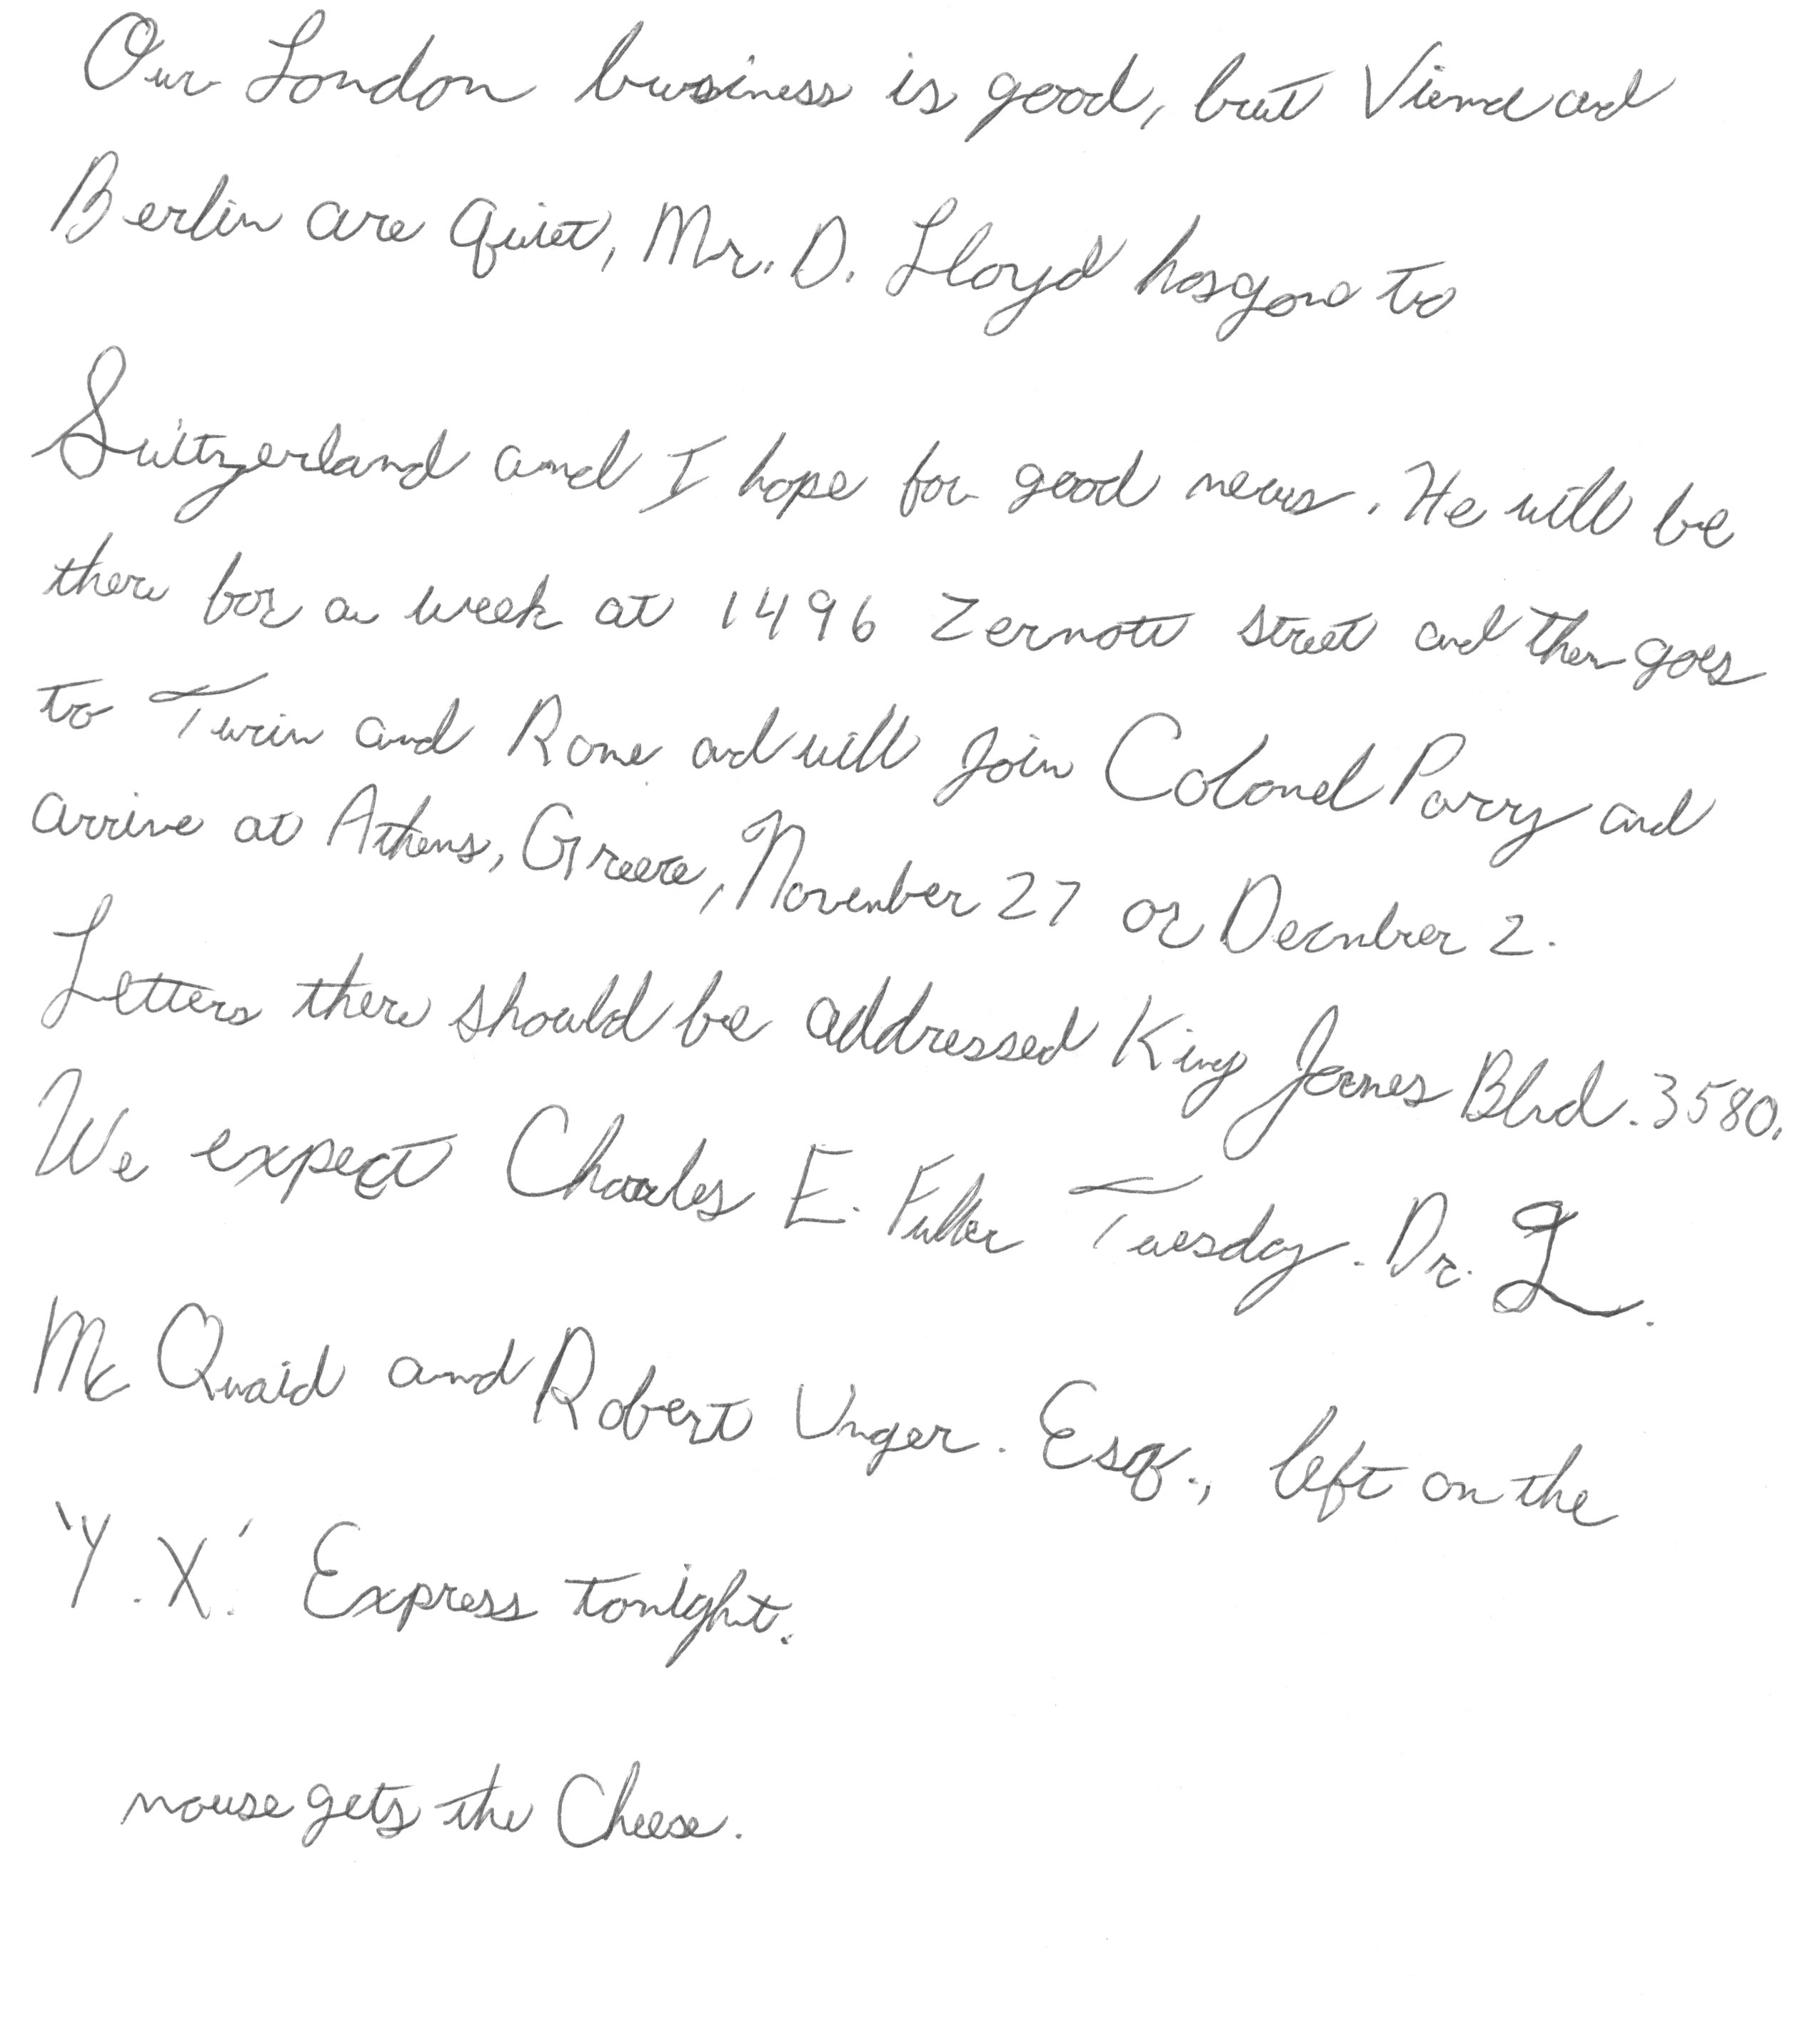 Our London business is good, but Vienna and
Berlin are quiet, Mr. D. Lloyd has gone to
Switzerland and I hope for good news. He will be
there for a week at 1496 Zermott street and then goes
to Turin and Rome and will join Colonel Parry and
arrive at Athens, Greece, November 27 or December 2.
Letters there should be addressed King James Blvd. 3580.
We expect Charles E. Fuller Tuesday. Dr. L.
Mc Quaid and Robert Unger. Esq., left on the
'Y. X.' Express tonight.
mouse gets the Cheese.